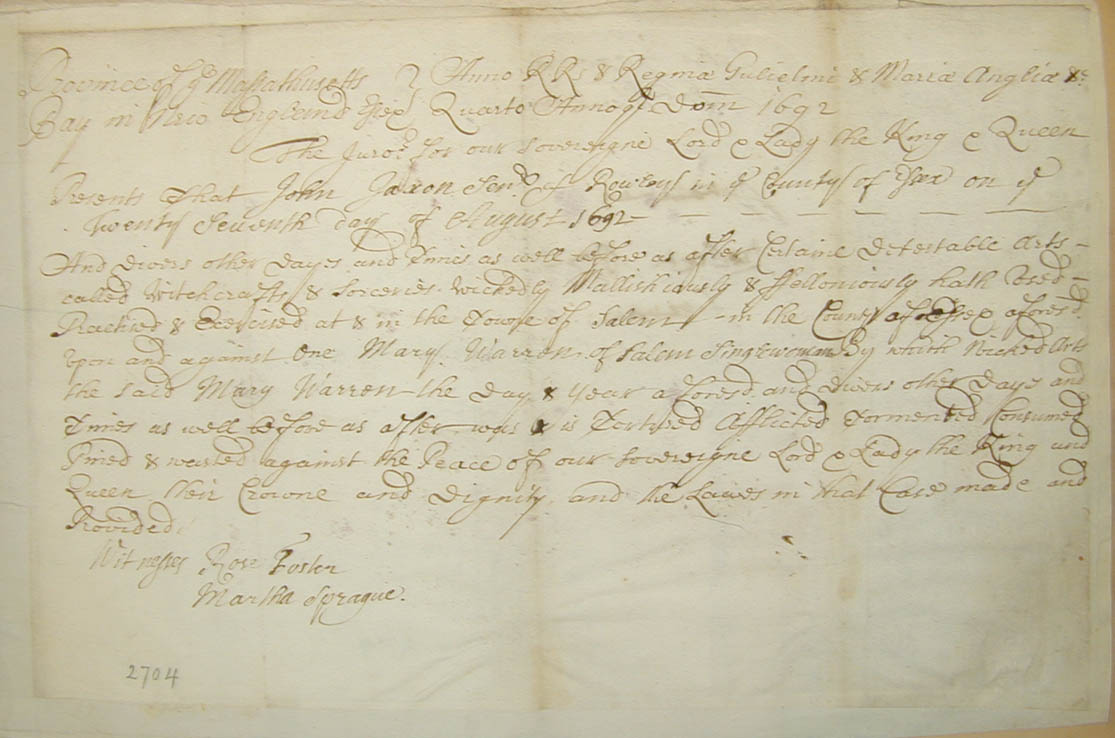 Province of ye Massathusetts } Anno R Rs & Reginæ Gulielmi & Mariæ Angliæ &c
Bay in New England Essex } Quarto Annoq Dom 1692
The Juror's for our Sovereigne Lord & Lady the King & Queen
Presents That John Jaxon Senr of Rowley in ye County of Essex on ye
Twenty Seventh day of August 1692 — — — — —
And divers other Dayes and Times as well before as after Certaine Detestable Arts
called Witchcrafts & Sorceries Wickedly Mallishiously & ffelloniously hath Vsed
Practised & Exercised at & in the Towne of Salem - in the County of Essex aforesd
Vpon and against One Mary Warren of Salem Singlewoman By which Wicked Arts
the said Mary Warren the Day & Year aforesd and divers other Days and
Times as well before as after was & is Tortured Afflicted Tormented Consumed
Pined & wasted against the Peace of our Sovereigne Lord & Lady the King and
Queen their Crowne and Dignity and the Lawes in that Case made and
Provided
Witnesses Rose Foster
Martha Sprague.
2704